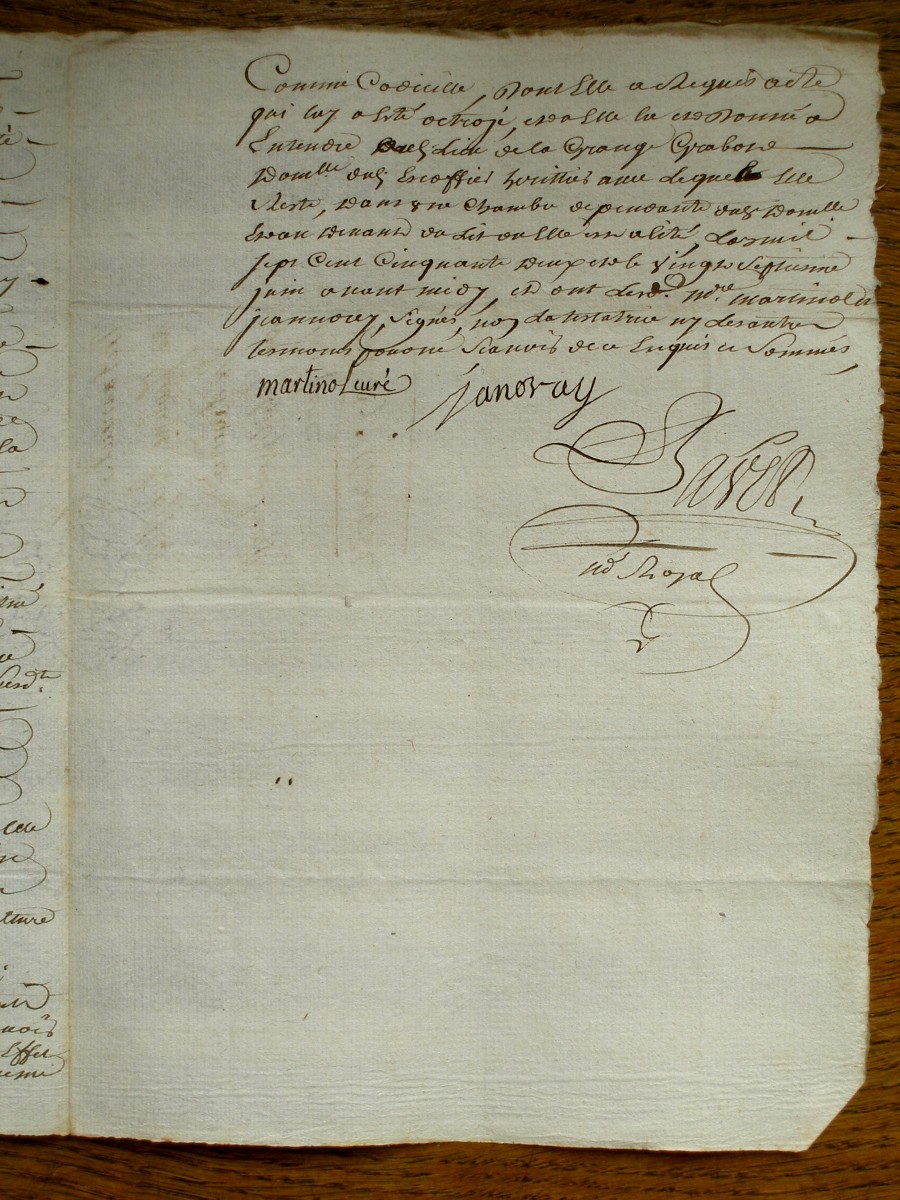 Comme Codicille, Dont Elle a Requis acte
qui luy a Esté octroyé, et a Elle lu et Donné a
Entendre aud. Lieu de la Grange Grabost
Domlle dud. Escoffier heritier avec Lequel Elle
Reste, Dans une Chambre dependante dud. Domlle
Et au Devant du Lit ou Elle est alité, L'an mil
sept Cent Cinquante Deux et le Vingt Septieme
juin avant midy, et ont Lesd. Mre Martinol et
jeannorey, signés, non La testatrice ny Les autres
temoins pour ne sçavoir de ce Enquis et Sommés,
martinol curé janoray
Ravel
nore Royal
té
la
cturé
nois
Effet